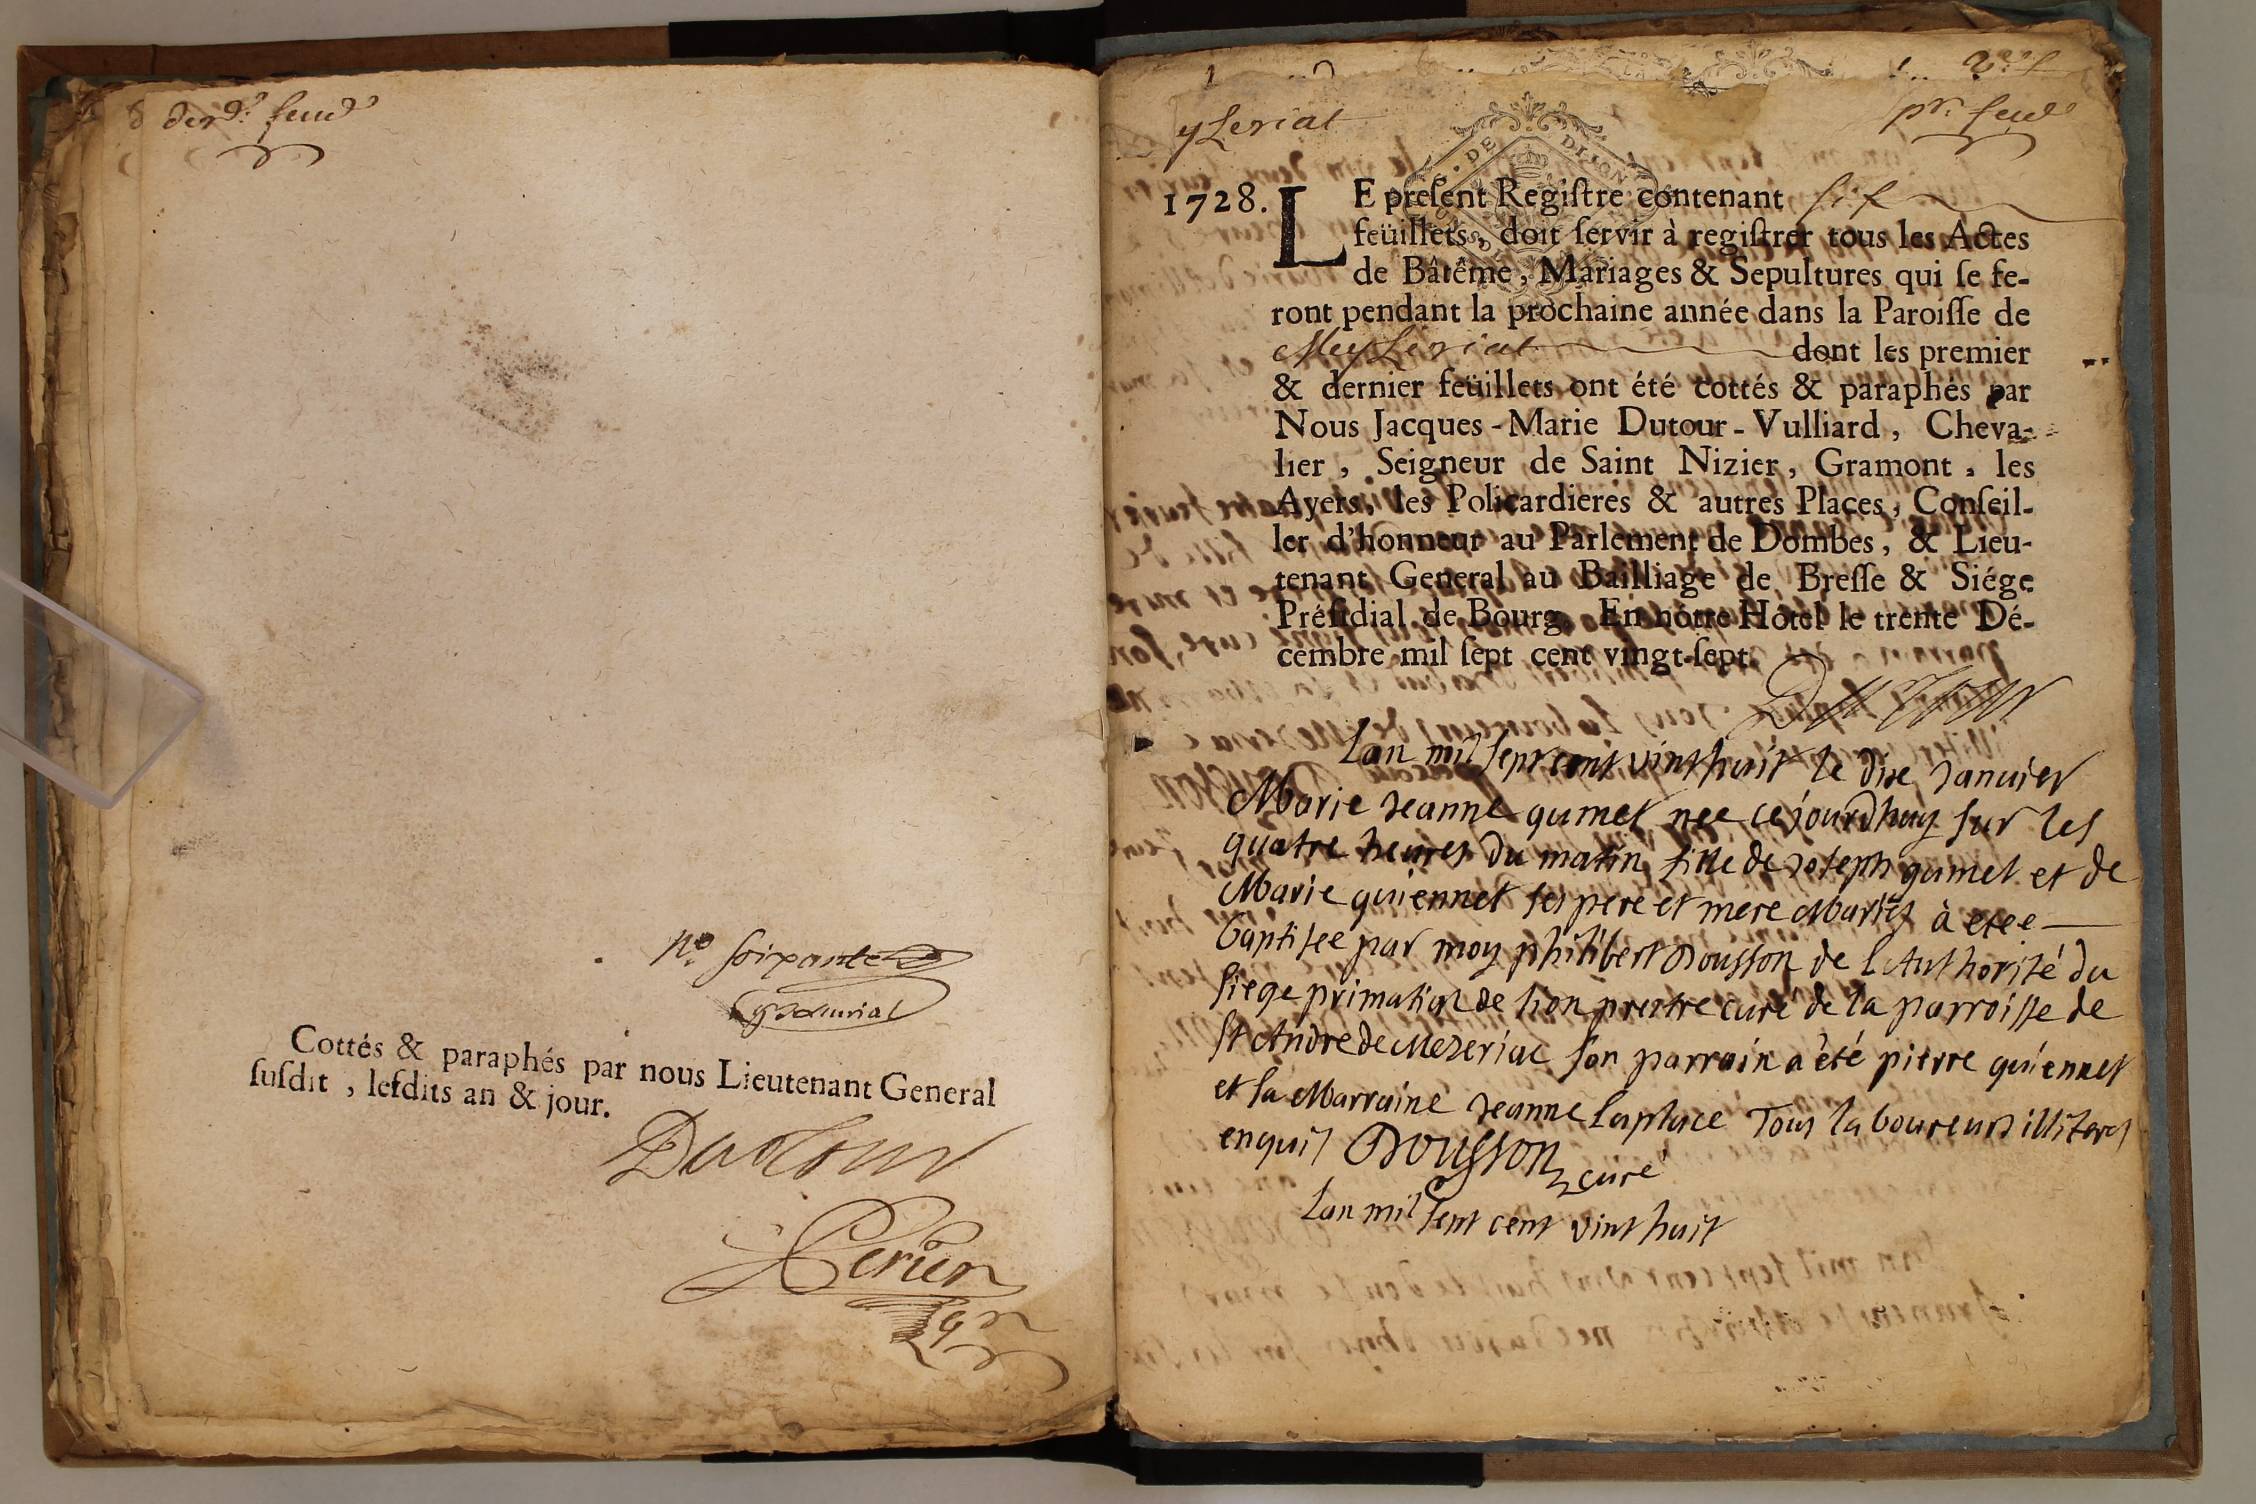 8 der.d feud
No. soixante
Cottés & paraphés par nous Lieutenant General
ſuſdit, leſdits an & jour.
Dutour
Perier
1
pr. feud
DE DIJON
1728.
LE preſent Regiſtre contenant six
feüillets, doit ſervir à regiſtrer tous les Actes
de Bâtême, Mariages & Sepultures qui ſe fe-
ront pendant la prochaine année dans la Paroiſſe de
Meyseriat dont les premier
& dernier feüillets ont été cottés & paraphés par
Nous Jacques-Marie Dutour-Vulliard, Cheva-
lier, Seigneur de Saint Nizier, Gramont, les
Ayers, les Policardieres & autres Places, Conſeil-
ler d'honneur au Parlement de Dombes, & Lieu-
tenant General au Bailliage de Breſſe & Siége
Préſidial de Bourg. En nôtre Hôtel le trente Dé-
cembre mil ſept cent vingt-ſept.
Lan mil sept cent vint huit le dixe Janvier
Marie Jeanne gumet nee cejourdhuy sur les
quatre heures du matin fille de Joseph gumet et de
Marie guiennet ses pere et mere Mariés à eteé
baptisee par moy philibert Dousson de lAuthorité du
siege primatial de lion prestre curé de la parroisse de
St Andre de Mezeriac son parrain a été pierre guiennet
et sa Marraine Jeanne laplace Tous laboureurs illiteres
enquis Dousson curé
Lan mil sept cent vint huit